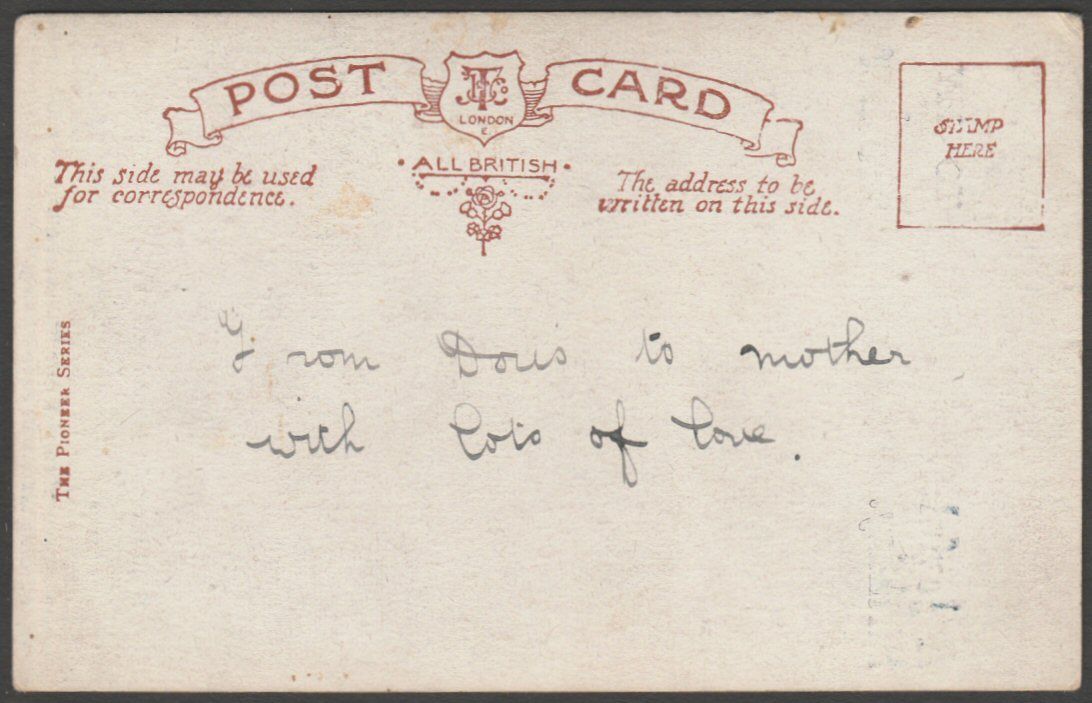 POST CARD
LONDON
E.
• ALL BRITISH •
This side may be used
for correspondence.
The address to be
written on this side.
STAMP
HERE
THE PIONEER SERIES
From Doris to mother
with lots of love.